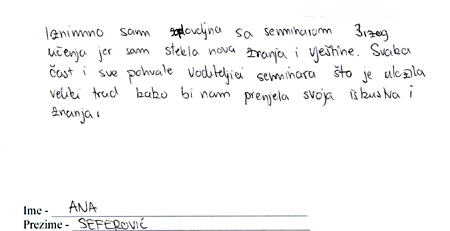 Iznimno sam zadovoljna sa seminarom Brzog
učenja jer sam stekla nova znanja i vještine. Svaka
čast i sve pohvale voditeljici seminara što je uložila
veliki trud kako bi nam prenjela svoja iskustva i
znanja.
Ime - ANA
Prezime - SEFEROVIĆ